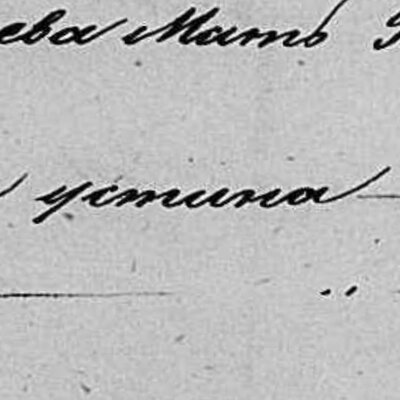 ева Мать
устина